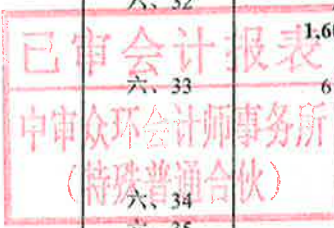 六、32
1,6
已审会计报表
六、33
6
中审众环会计师事务所
(特殊普通合伙)
六、34
六、35